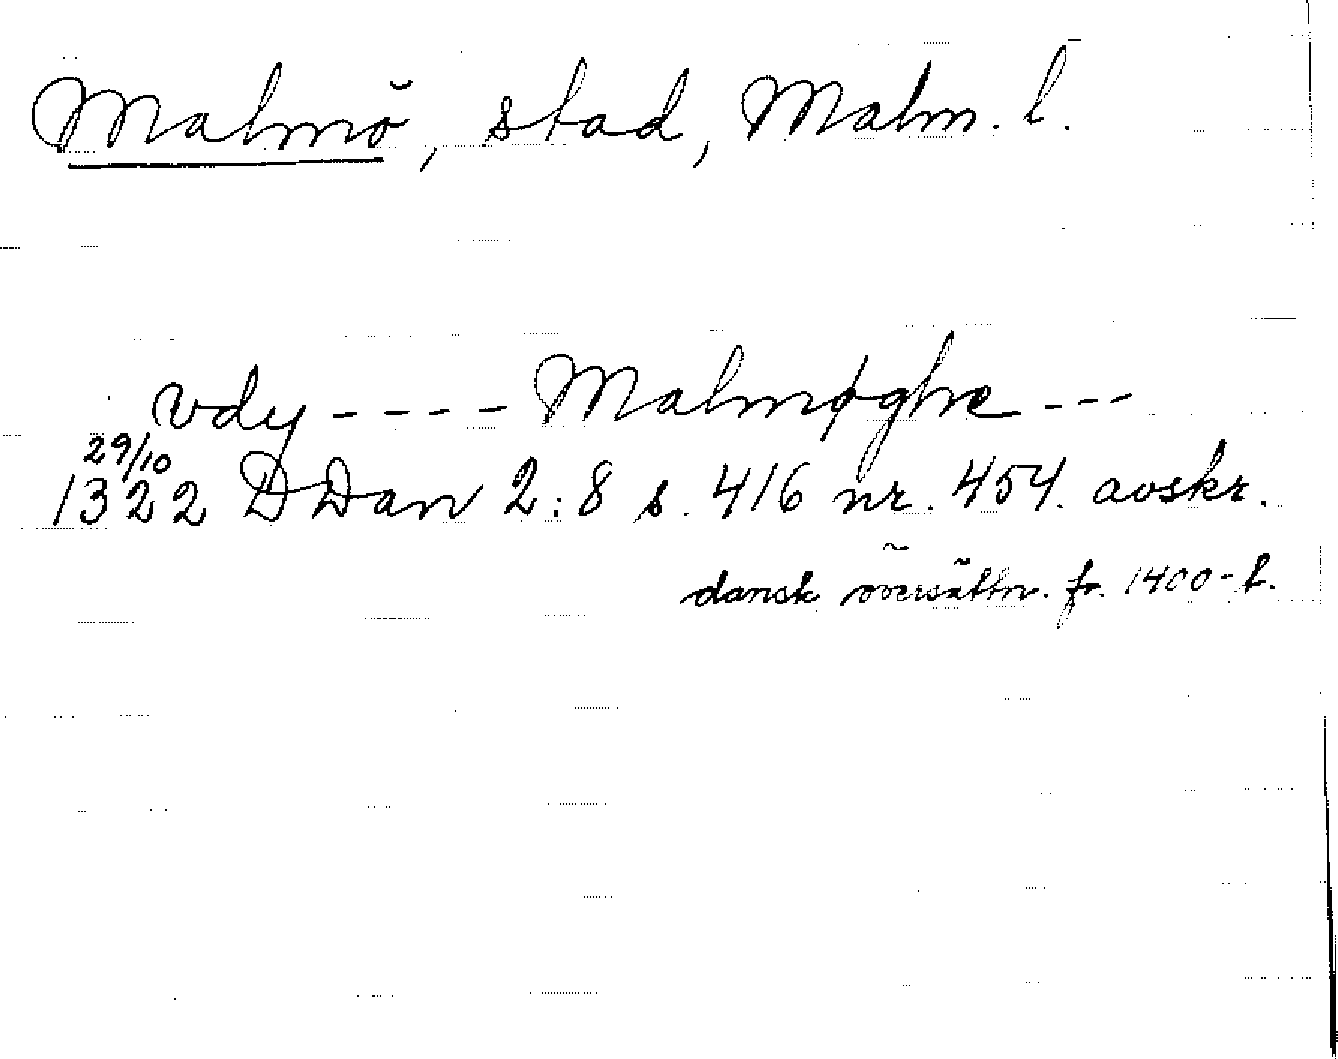 Malmö, stad, Malm. l.
vdy - - - - Malmøghe - - -
29/10
1322 DDan 2:8 s. 416 nr. 454. avskr.
dansk översättn. fr. 1400-t.